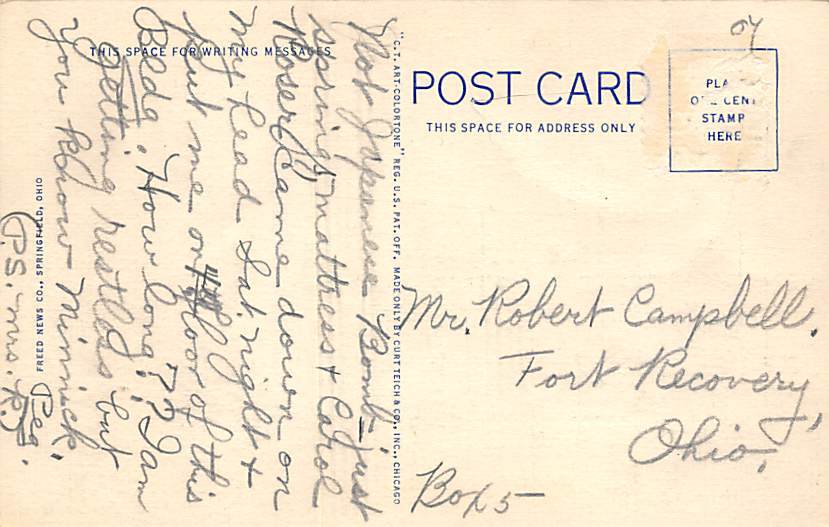 THIS SPACE FOR WRITING MESSAGES
Not Japanese Bomb - just
spring mattress & Carol
came down on
my head Sat. night &
put me on floor of this
Bldg. How long?? I am
getting restless but
you know Minnick.
Peg.
(P.S. Mrs. R.)
FREED NEWS CO., SPRINGFIELD, OHIO
"C.T. ART-COLORTONE" REG. U.S. PAT. OFF. MADE ONLY BY CURT TEICH & CO., INC., CHICAGO
POST CARD
THIS SPACE FOR ADDRESS ONLY
PLA
CENT
STAMP
HERE
Mr. Robert Campbell.
Fort Recovery,
Ohio.
Box 5